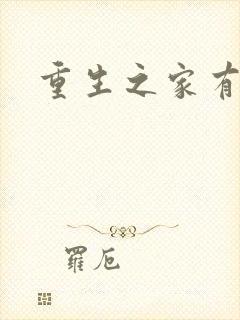 重生之家有
羅厄